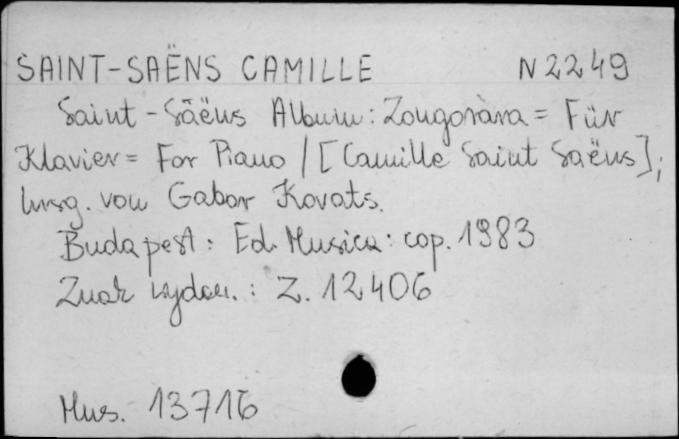 SAINT-SAËNS CAMILLE N 2249
Saint-Säëns Album: Zongorára = Für
Klavier = For Piano / [Camille Saint Saëns];
hrsg. von Gabor Kovats.
Budapest: Ed. Musica: cop. 1983
Znak wydaw.: Z. 12406
Mus. 13716